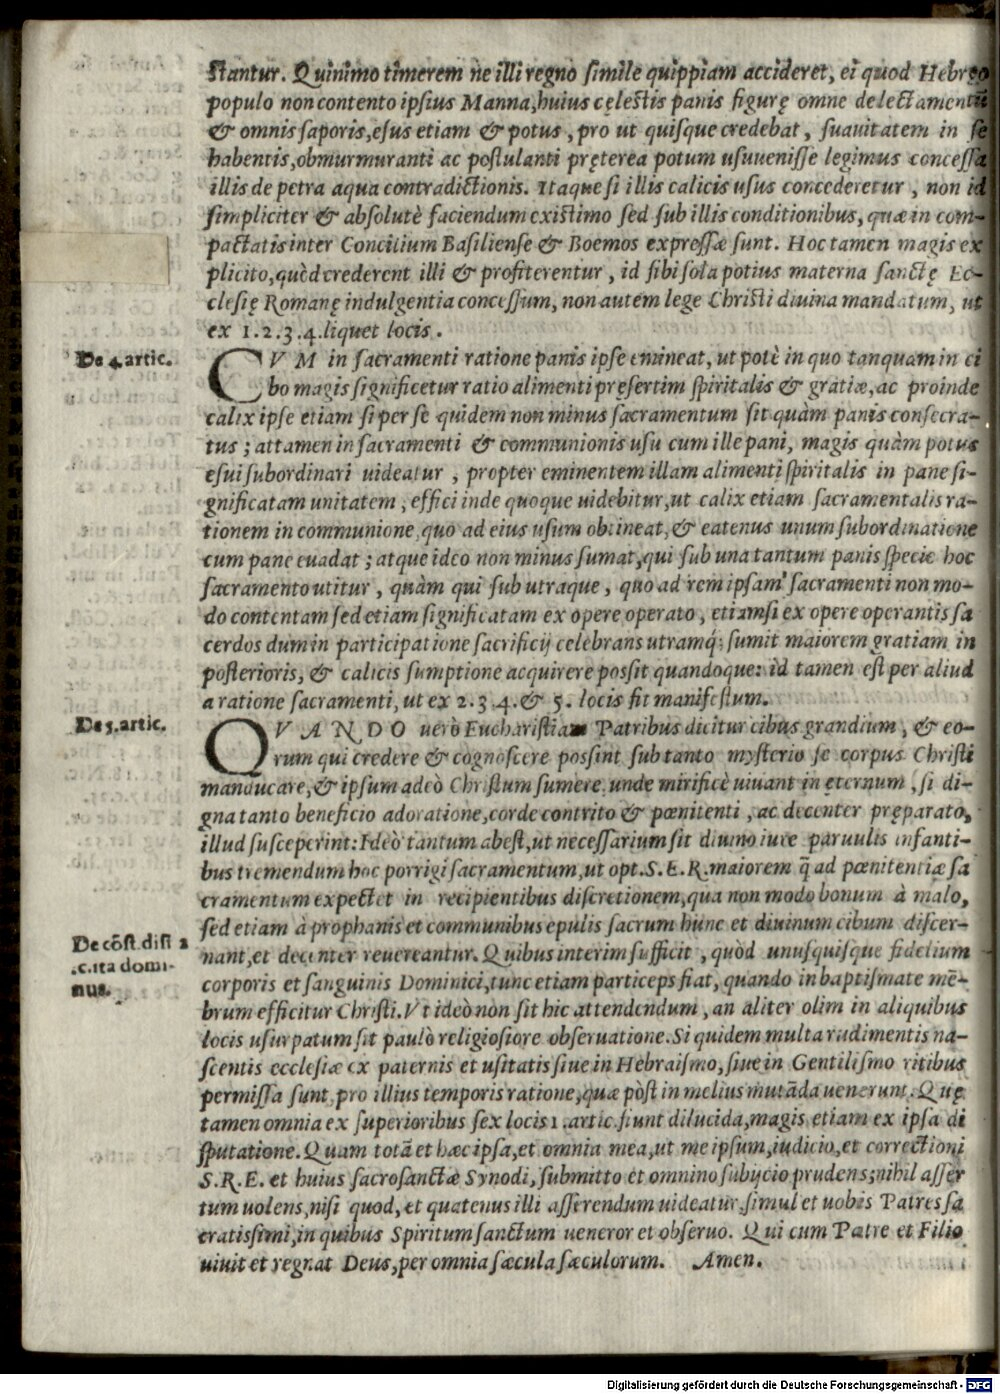 stantur. Quinimo timerem ne illi regno simile quippiam accideret, ei quod Hebręo
populo non contento ipsius Manna, huius cęlestis panis figurę omne delectamentū
& omnis saporis, esus etiam & potus, pro ut quisque credebat, suauitatem in se
habentis, obmurmuranti ac postulanti pręterea potum usuuenisse legimus concessa
illis de petra aqua contradictionis. Itaque si illis calicis usus concederetur, non id
simpliciter & absolutè faciendum existimo sed sub illis conditionibus, quæ in com-
pactatis inter Concilium Basiliense & Boemos expressæ sunt. Hoc tamen magis ex
plicito, quòd crederent illi & profiterentur, id sibi sola potius materna sanctę Ec-
clesię Romanę indulgentia concessum, non autem lege Christi diuina mandatum, ut
ex 1.2.3.4. liquet locis.
De 4. artic.
CVM in sacramenti ratione panis ipse emineat, ut potè in quo tanquam in ci
bo magis significetur ratio alimenti pręsertim spiritalis & gratiæ, ac proinde
calix ipse etiam si per se quidem non minus sacramentum sit quàm panis consecra-
tus; attamen in sacramenti & communionis usu cum ille pani, magis quàm potus
esui subordinari uideatur, propter eminentem illam alimenti spiritalis in pane si-
gnificatam unitatem, effici inde quoque uidebitur, ut calix etiam sacramentalis ra-
tionem in communione, quo ad eius usum obtineat, & eatenus unum subordinatione
cum pane euadat; atque ideo non minus sumat, qui sub una tantum panis specie hoc
sacramento utitur, quàm qui sub utraque, quo ad rem ipsam sacramenti non mo-
do contentam sed etiam significatam ex opere operato, etiamsi ex opere operantis sa
cerdos dum in participatione sacrificij celebrans utramq; sumit maiorem gratiam in
posterioris, & calicis sumptione acquirere possit quandoque: id tamen est per aliud
a ratione sacramenti, ut ex 2.3.4.& 5. locis fit manifestum.
De 5. artic.
QVANDO uerò Eucharistiam Patribus dicitur cibus grandium, & eo-
rum qui credere & cognoscere possint sub tanto mysterio se corpus Christi
manducare, & ipsum adeò Christum sumere, unde mirificè uiuant in eternum, si di-
gna tanto beneficio adoratione, corde contrito & pœnitenti, ac decenter pręparato,
illud susceperint: Ideò tantum abest, ut necessarium sit diuino iure paruulis infanti-
bus tremendum hoc porrigi sacramentum, ut opt. S.E.R. maiorem q̄ ad pœnitentiæ sa
cramentum expectet in recipientibus discretionem, qua non modo bonum à malo,
sed etiam à prophanis et communibus epulis sacrum hunc et diuinum cibum discer-
De cōst. dist 2
.c. ita domi-
nus.
nant, et decenter reuereantur. Quibus interim sufficit, quòd unusquisque fidelium
corporis et sanguinis Dominici, tunc etiam particeps fiat, quando in baptismate mē-
brum efficitur Christi. Vt ideò non sit hic attendendum, an aliter olim in aliquibus
locis usurpatum sit paulò religiosiore obseruatione. Si quidem multa rudimentis na-
scentis ecclesiæ ex paternis et usitatis siue in Hebraismo, siue in Gentilismo ritibus
permissa sunt, pro illius temporis ratione, quæ pòst in melius mutāda uenerunt. Quę
tamen omnia ex superioribus sex locis 1. artic. fiunt dilucida, magis etiam ex ipsa di
sputatione. Quam totā et hæc ipsa, et omnia mea, ut me ipsum, iudicio, et correctioni
S.R.E. et huius sacrosanctæ Synodi, submitto et omnino subijcio prudens; nihil asser
tum uolens, nisi quod, et quatenus illi asserendum uideatur, simul et uobis Patres sa
cratissimi, in quibus Spiritum sanctum ueneror et obseruo. Qui cum Patre et Filio
uiuit et regnat Deus, per omnia sæcula sæculorum. Amen.
Digitalisierung gefördert durch die Deutsche Forschungsgemeinschaft - DFG